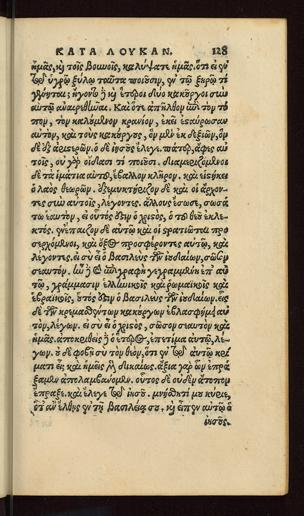 ΚΑΤΑ ΛΟΥΚΑΝ. 128
ἡμᾶς, κỳ τοῖς βουνοῖς, καλύψατε ἡμᾶς. ὅτι εἰ ἐν
τῷ ὑγρῷ ξύλῳ ταῦτα ποιοῦσιν, ἐν τῷ ξηρῷ τί
γένηται; ἤγοντο δὲ κỳ ἕτεροι δύο κακοῦργοι σὺν
αὐτῷ ἀναιρεθῆναι. Καὶ ὅτε ἀπῆλθον ἐπὶ τὸν τό
πον, τὸν καλούμενον κρανίον, ἐκεῖ ἐσταύρωσαν
αὐτὸν, καὶ τοὺς κακούργους, ὃν μὲν ἐκ δεξιῶν, ὃν
δὲ ἐξ ἀριστερῶν. ὁ δὲ ἰησοῦς ἔλεγε. πάτερ, ἄφες αὐ
τοῖς, οὐ γὰρ οἴδασι τί ποιοῦσι. διαμεριζόμενοι
δὲ τὰ ἱμάτια αὐτοῦ, ἔβαλλον κλῆρον. καὶ εἱστήκει
ὁ λαὸς θεωρῶν. ἐξεμυκτήριζον δὲ καὶ οἱ ἄρχον-
τες σὺν αὐτοῖς, λέγοντες. ἄλλους ἔσωσε, σωσά
τω ἑαυτὸν, εἰ οὗτός ἐστιν ὁ χριστὸς, ὁ τοῦ θεοῦ ἐκλε-
κτός. ἐνέπαιζον δὲ αὐτῷ καὶ οἱ στρατιῶται προ
σερχόμενοι, καὶ ὄξος προσφέροντες αὐτῷ, καὶ
λέγοντες. εἰ σὺ εἶ ὁ βασιλεὺς τῶν ἰουδαίων, σῶσον
σεαυτόν. ἦν δὲ κỳ ἐπιγραφὴ γεγραμμένη ἐπ' αὐ
τῷ, γράμμασιν ἑλληνικοῖς καὶ ῥωμαϊκοῖς καὶ
ἑβραϊκοῖς, οὗτός ἐστιν ὁ βασιλεὺς τῶν ἰουδαίων. εἷς
δὲ τῶν κρεμασθέντων κακούργων ἐβλασφήμει αὐ
τὸν, λέγων. εἰ σὺ εἶ ὁ χριστὸς, σῶσον σεαυτὸν καὶ
ἡμᾶς. ἀποκριθεὶς δὲ ὁ ἕτερος, ἐπετίμα αὐτῷ, λέ-
γων. οὐδὲ φοβῇ σὺ τὸν θεὸν, ὅτι ἐν τῷ αὐτῷ κρί
ματι εἶ; καὶ ἡμεῖς μὲν δικαίως. ἄξια γὰρ ὧν ἐπρά
ξαμεν ἀπολαμβάνομεν. οὗτος δὲ οὐδὲν ἄτοπον
ἔπραξε. καὶ ἔλεγε τῷ ἰησοῦ. μνήσθητί μου κύριε,
ὅταν ἔλθῃς ἐν τῇ βασιλείᾳ σου. κỳ εἶπεν αὐτῷ ὁ
ἰησοῦς.